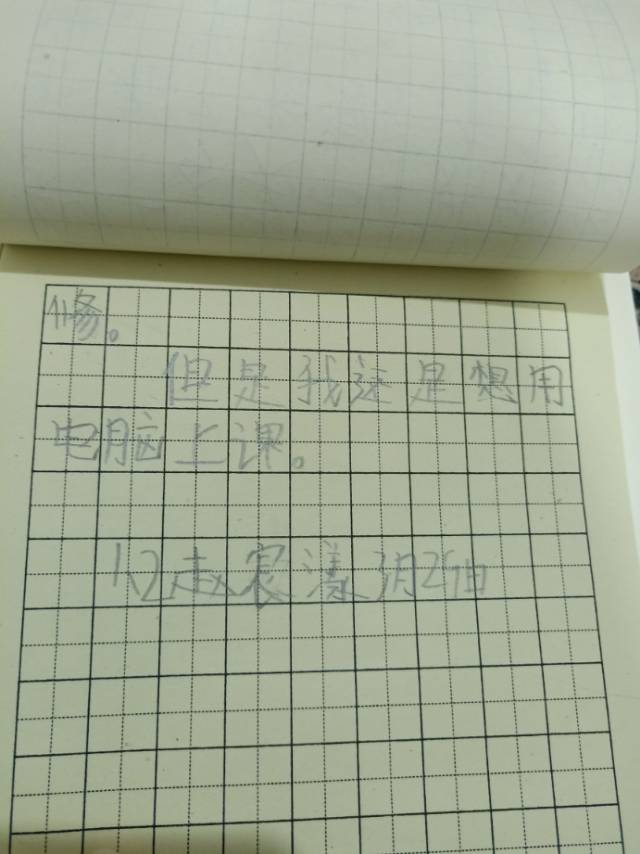 修。
但是我还是想用
电脑上课。
1、2赵宸漾3月2日